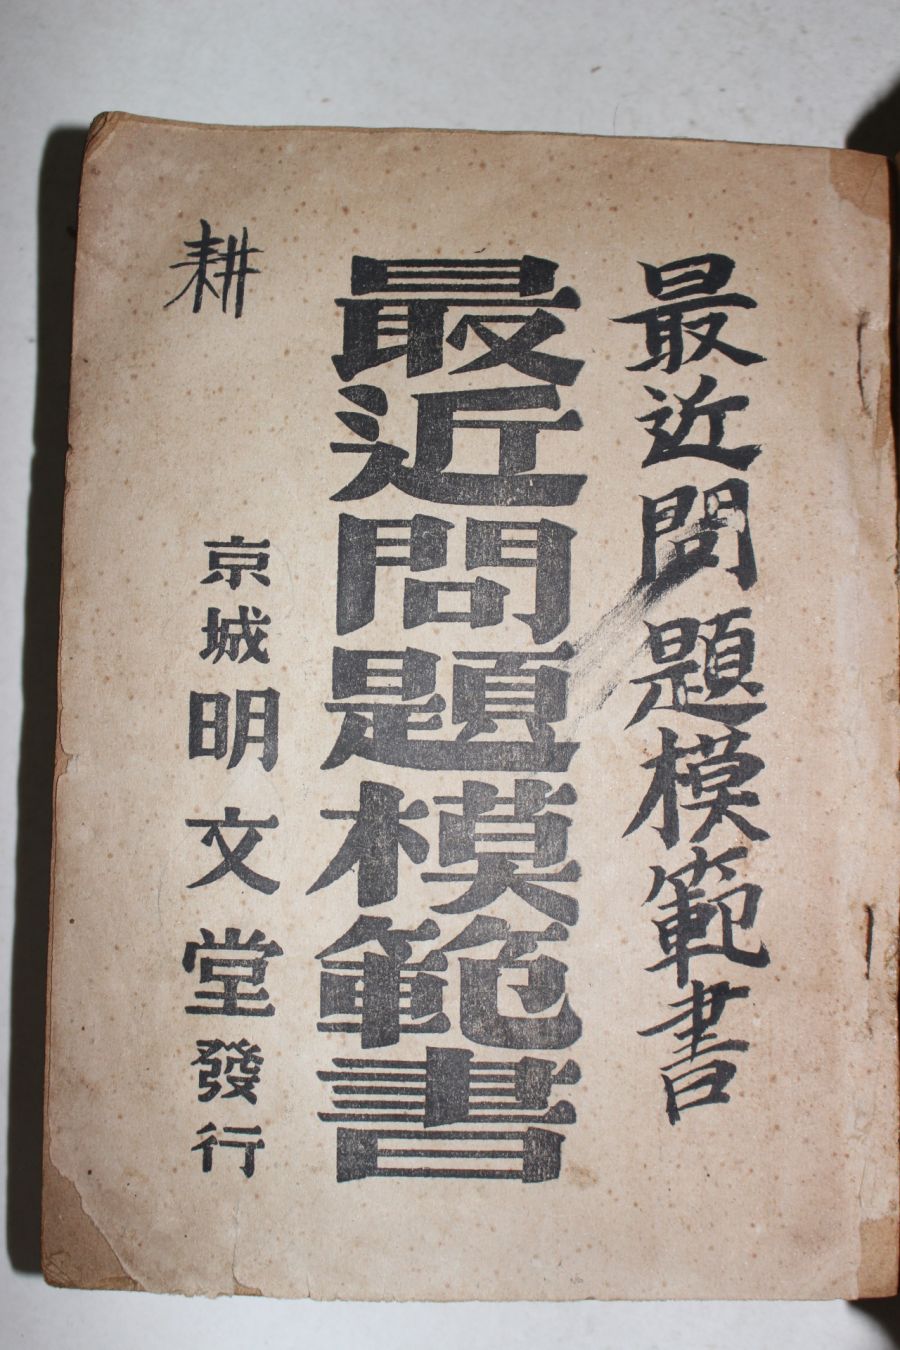 最近問題模範書
最近問題模範書
耕
京城明文堂發行